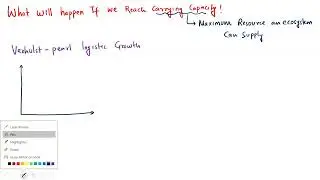 What will happen If we Reach Carrying Capacity!
Maximum Resource an ecosystem
Can Supply
Verhulst-pearl logistic Growth
Pen
Highlighter
Eraser